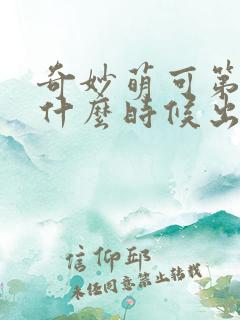 奇妙萌可第
什麼時候出
信仰邱
未经同意禁止转载